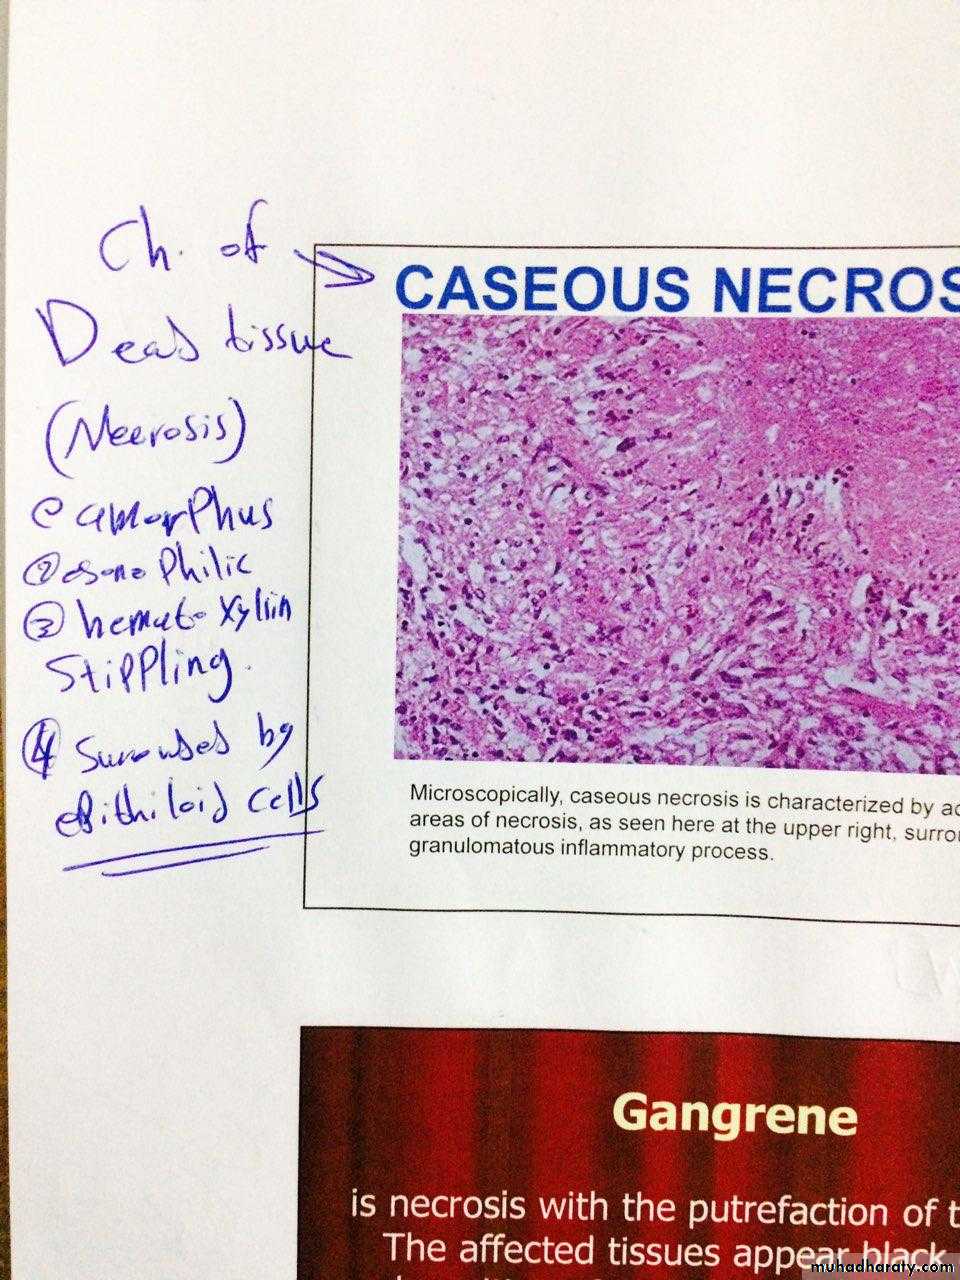 Ch. of
Dead tissue
(Necrosis)
① amorphus
② esono philic
③ hemato xylsin
Stippling.
④ Surouded by
epithiloid cells
CASEOUS NECROS
Microscopically, caseous necrosis is characterized by ac
areas of necrosis, as seen here at the upper right, surrou
granulomatous inflammatory process.
Gangrene
is necrosis with the putrefaction of t
The affected tissues appear black
muhadharaty.com